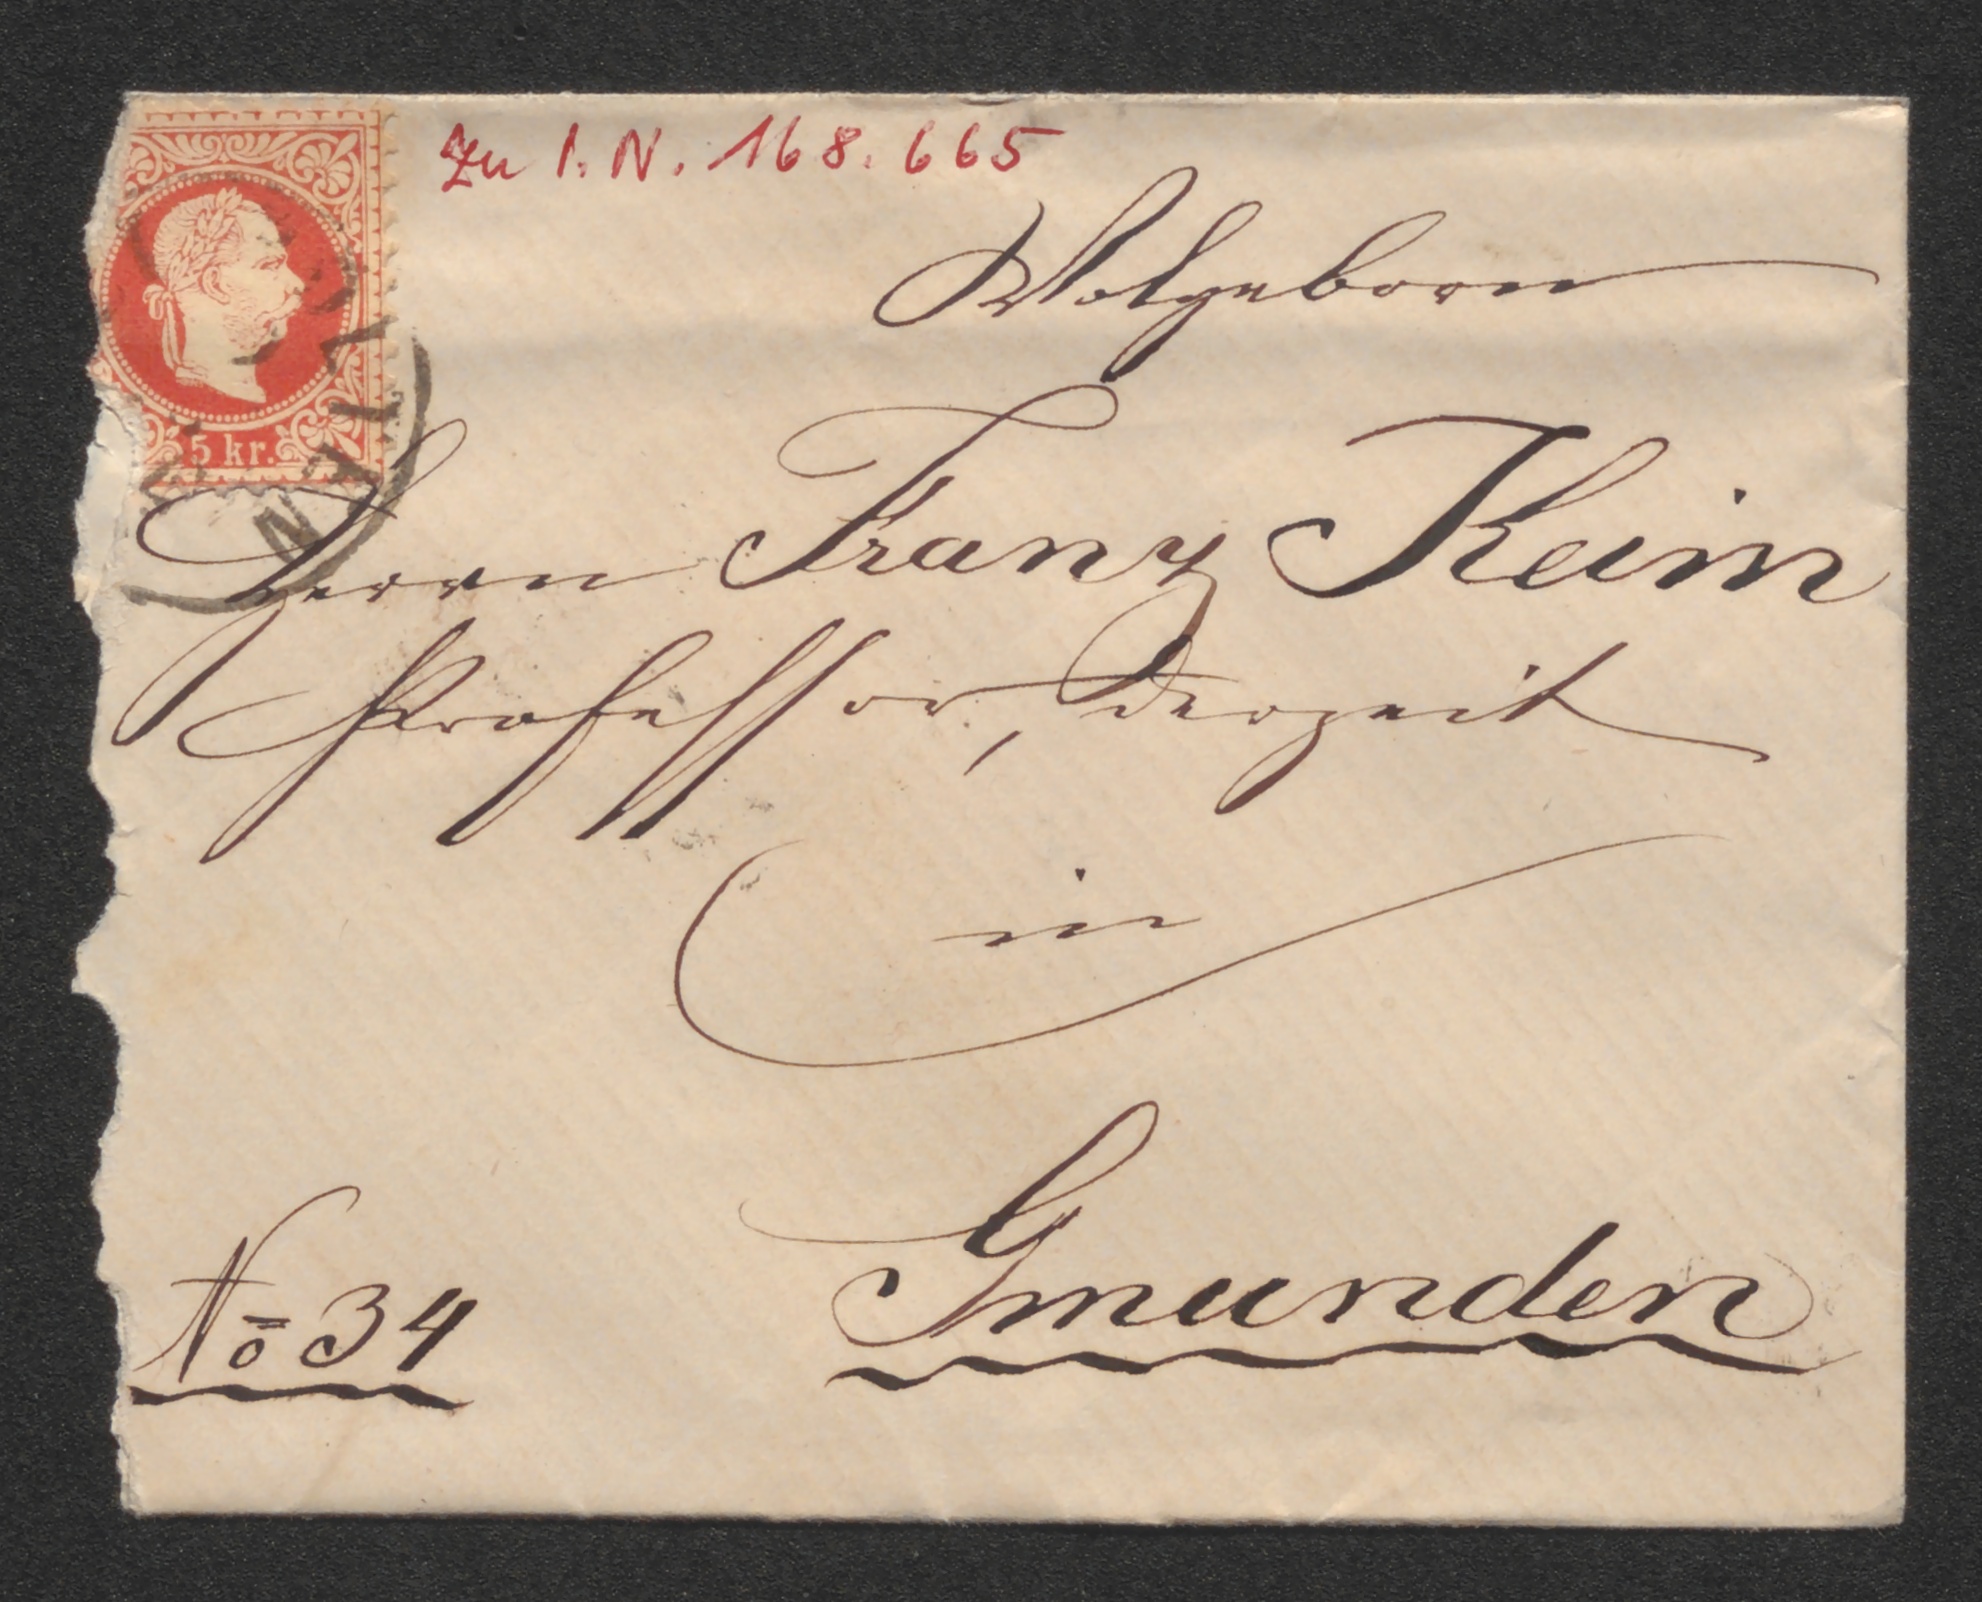 Zu I. N. 168.665
5 kr.
Wolgeborn
Herrn Franz Keim
Professor, derzeit
in
Gmunden
No 34